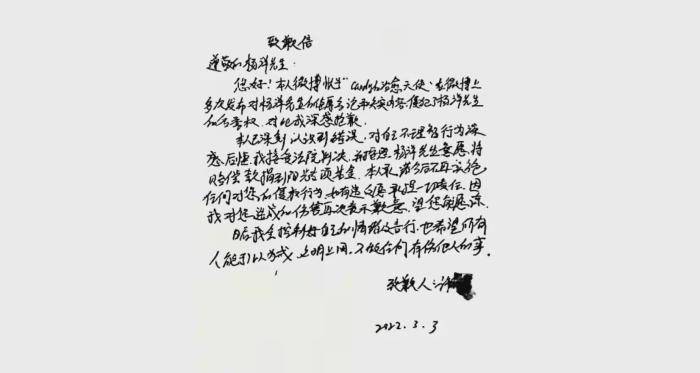 致歉信
尊敬的杨洋先生：
您好！本人微博帐号"Candy治愈天使"在微博上
多次发布对杨洋先生的侮辱言论和失实内容，侵犯了杨洋先生
的名誉权，对此我深感抱歉。
本人已深刻认识到错误，对自己不理智行为深
感后悔，我接受法院判决，并按照杨洋先生意愿，将
赔偿款捐到阳光专项基金。本人承诺今后不再实施
任何对您的侵权行为，如有违反愿承担一切责任。因
我对您造成的伤害再次表示歉意，望您能原谅。
日后我会控制好自己的情绪及言行，也希望所有
人能引以为戒，文明上网，不做任何有伤他人的事。
致歉人：许
2022.3.3